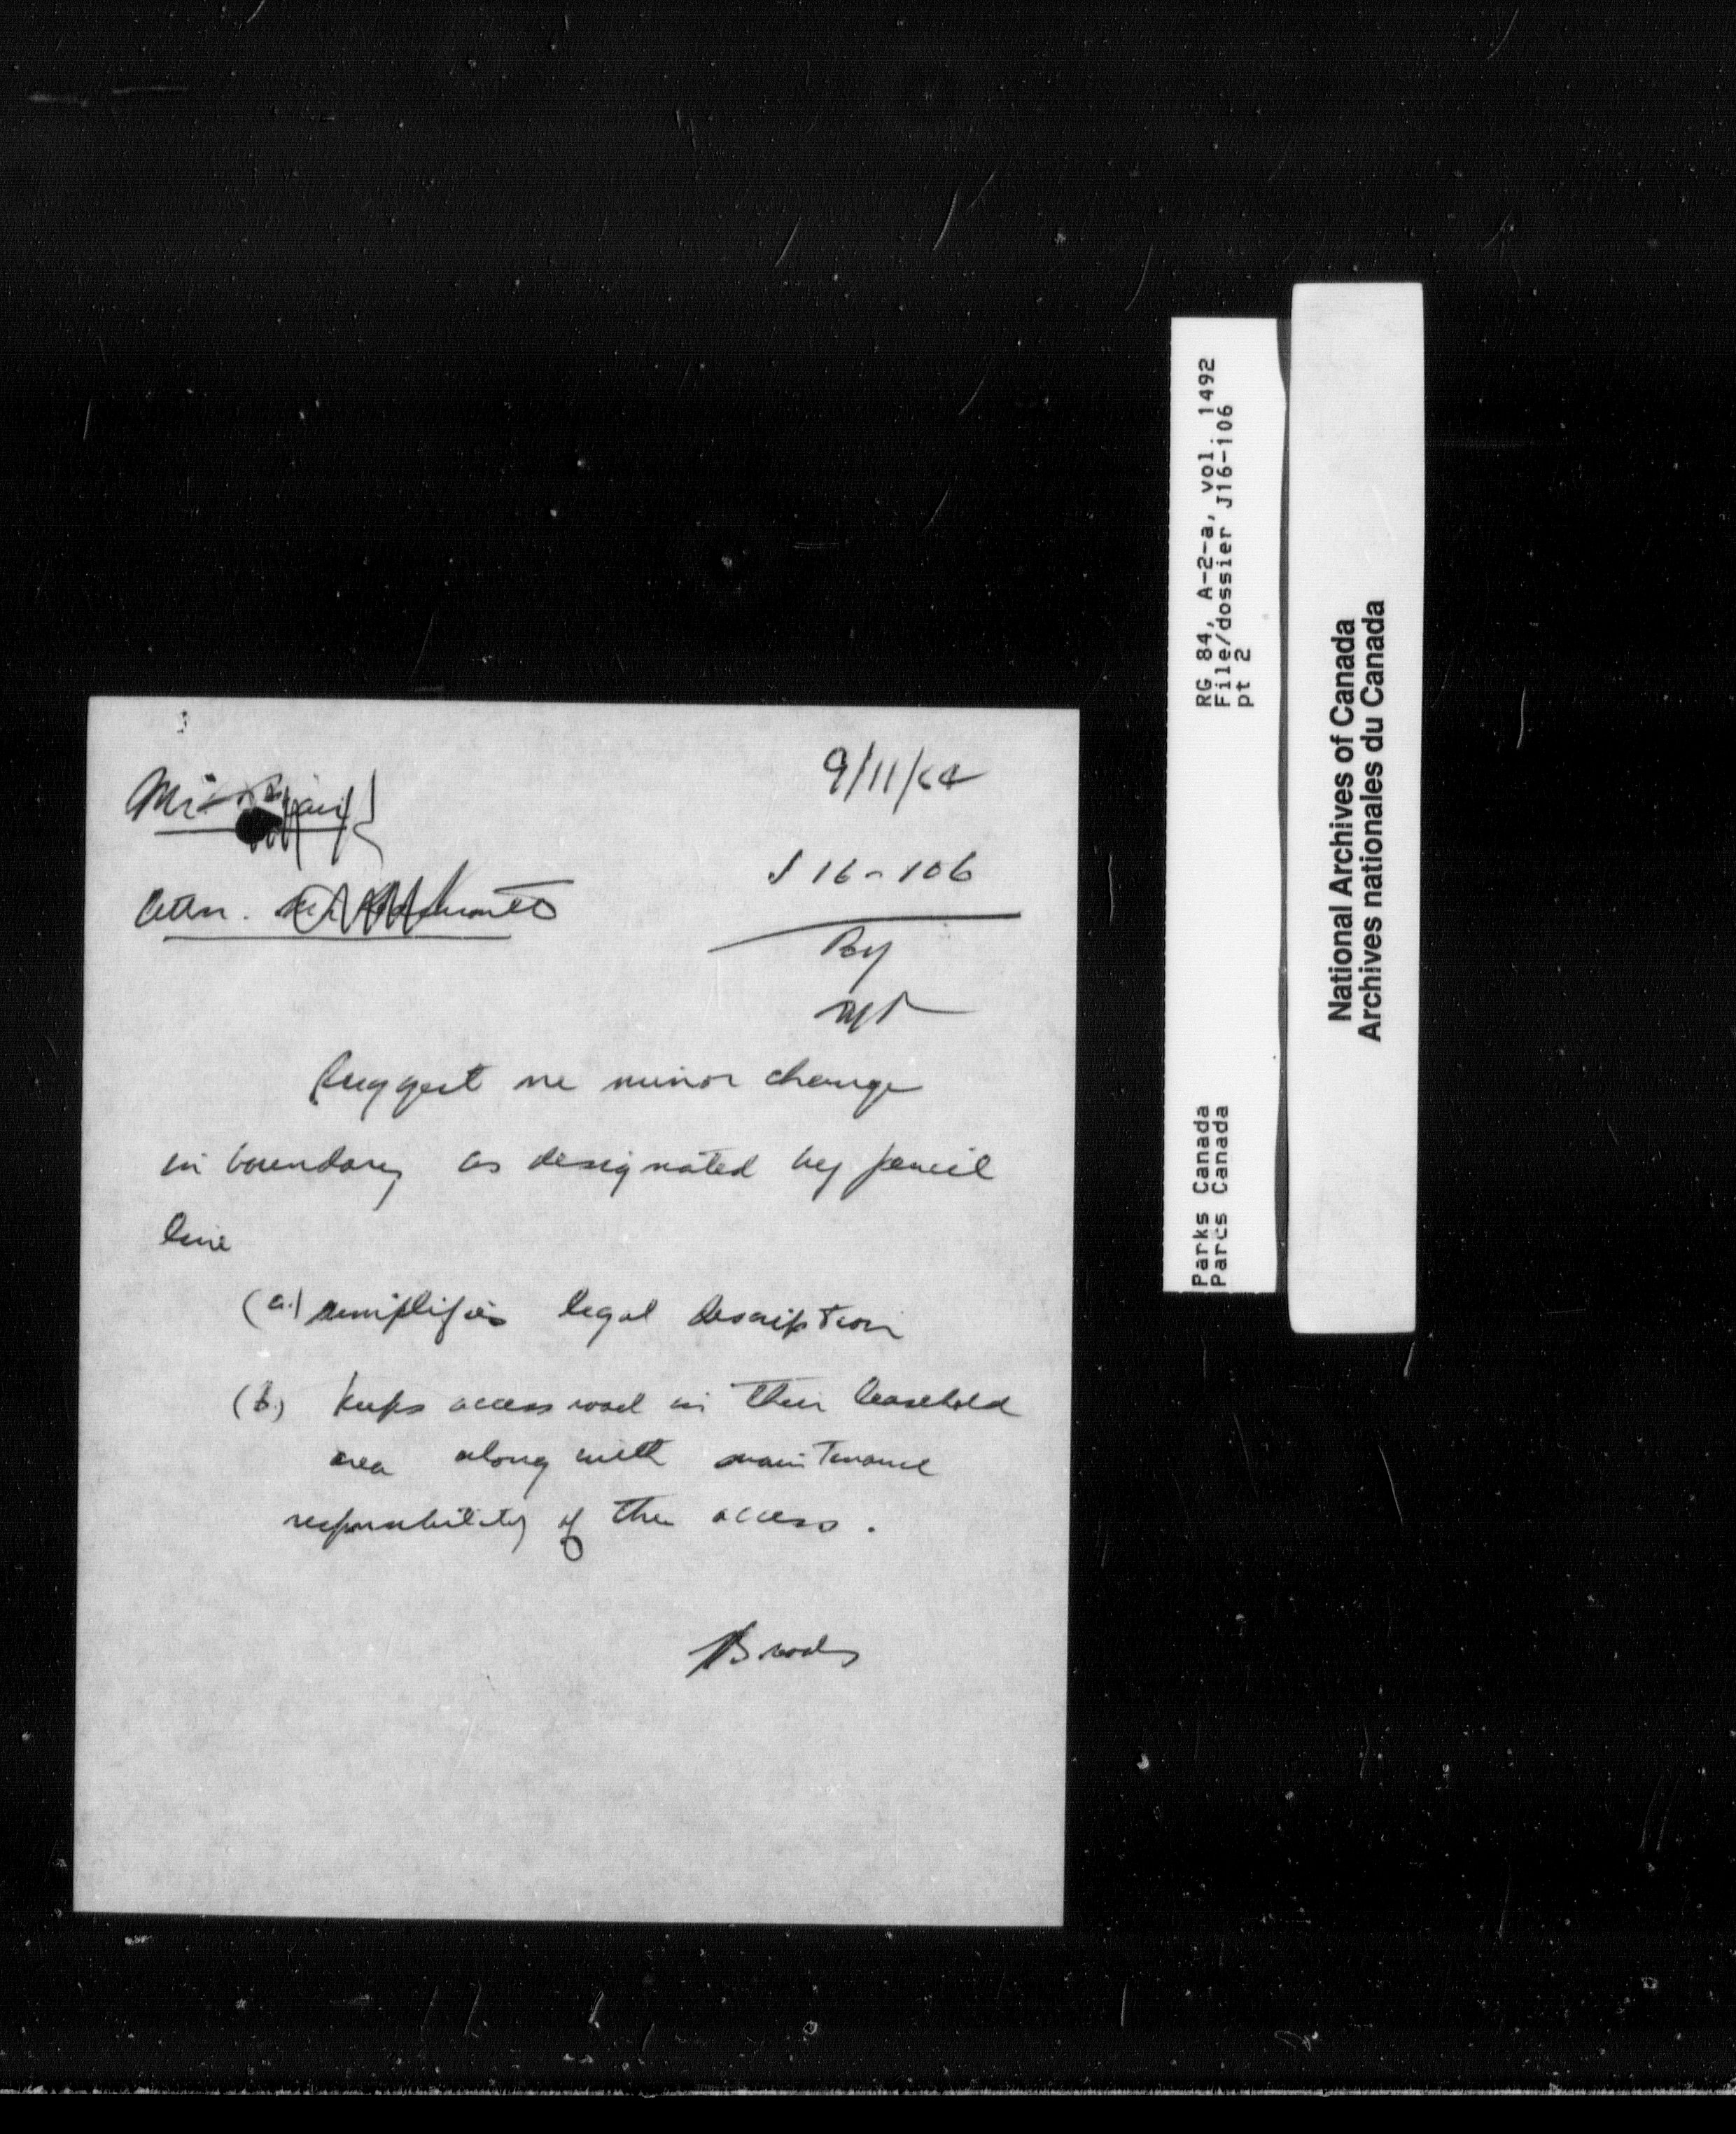 9/11/64
J 16-106
Attn.
Suggest we minor change
in boundary as designated by pencil
line
(a) simplifies legal description
(b) keeps access road in their leasehold
area along with maintenance
responsibility of the access.
RG 84, A-2-a, vol. 1492
File/dossier J16-106
pt 2
Parks Canada
Parcs Canada
National Archives of Canada
Archives nationales du Canada